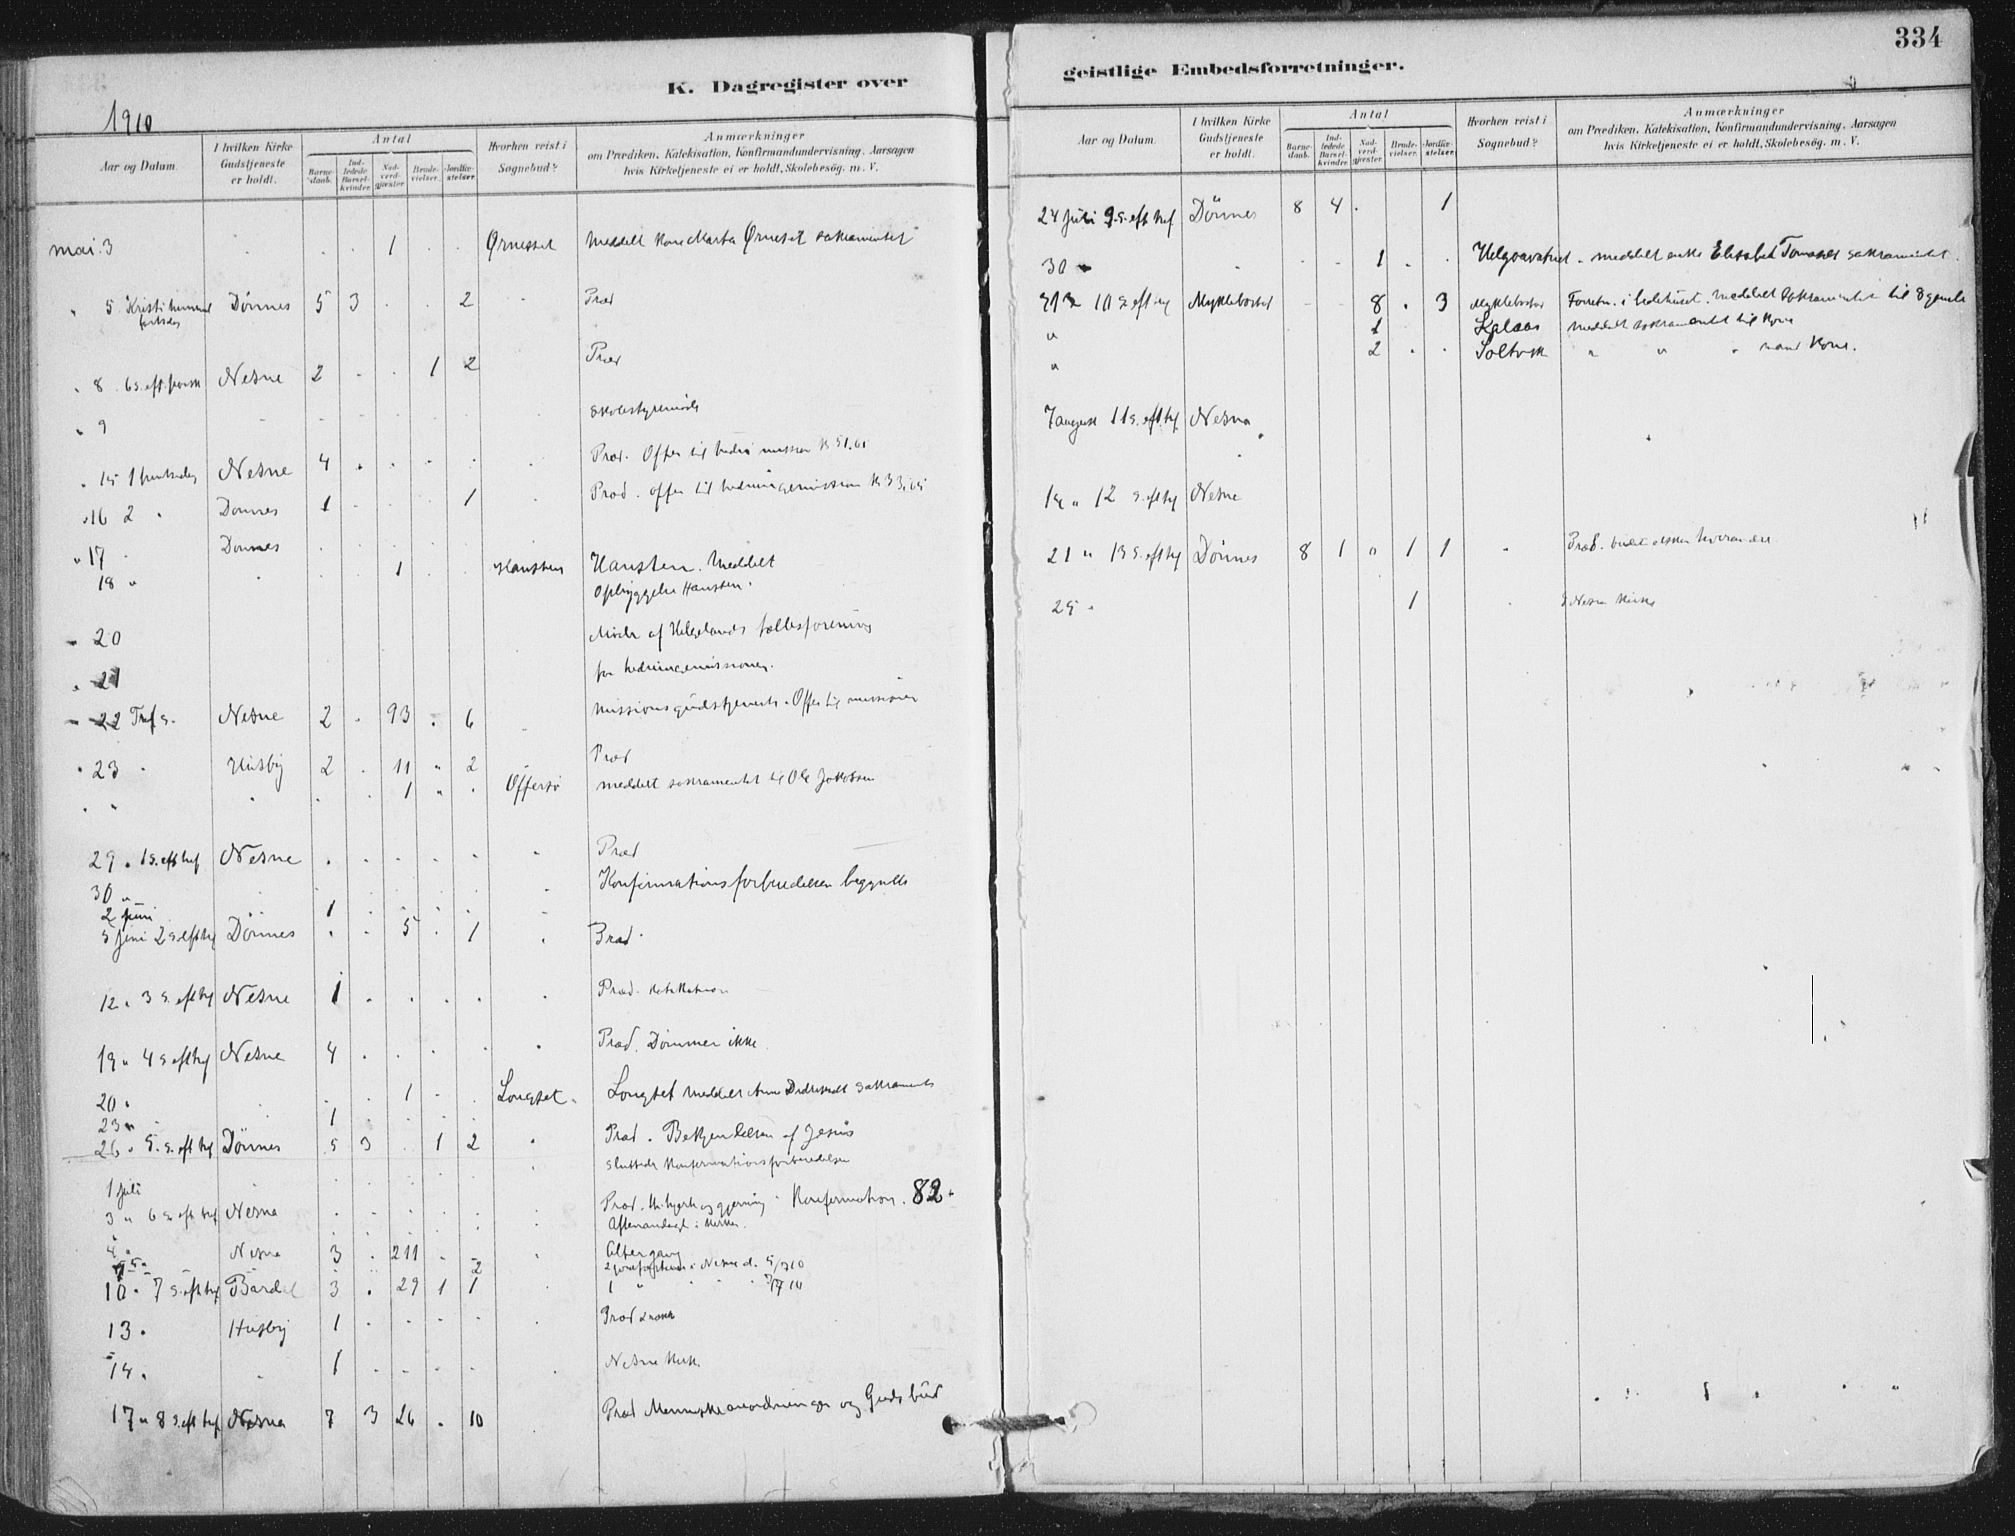 334
K. Dagregister over
geistlige Embedsforretninger.
1910
Aar og Datum.
I hvilken Kirke Gudstjeneste er holdt.
Antal
Barne-daab.
Ind-ledede Barsel-kvinder.
Nad-verd-gjester.
Brude-vielser.
Jordfæ-stelser.
Hvorhen reist i Sognebud?
Anmærkninger
om Prædiken, Katekisation, Konfirmandundervisning, Aarsagen
hvis Kirketjeneste ei er holdt, Skolebesøg. m. V.
mai 3 . . . 1 . . Ørnesset Meddelt kone Marta Ørneset sakramentet
" 5 Kristi himmel Dönnes 5 3 . . 2 . Præd
fartsdag
" 8 . 6 s. eft. paask Nesne 2 . . 1 2 Præd
" 9 Skolestyremöde
" 15 1 pintsedag Nesne 4 . . . . . Præd. Offer til missionen K 51.61
" 16 2 " Donnes 1 . . . 1 . Præd. offer til hedningemission K 33,65
" 17 Donnes
18 " . . 1 . . Hansten Hansten. Meddelt
Opbyggelse Hansten.
" 20 Möde af Helgelands fællesforening
" 21 for hedningemissionen.
" 22 Tref s. Nesne 2 . 93 . 6 Missionsgudstjeneste. Offer til missionen
" 23 . Husby 2 . 11 " 2 Præd
" " . . 1 " . Offersö meddelt sakramentet til Ole Jakobsen
29 . 1 s. eft tref Nesne . . . . . . Præd
30 " Konfirmationsforberedelsen begyndte
2 juni 1
5 juni 2 s. eft tref Dönnes . . 5 . 1 . Præd.
12 . 3 s. eft tref Nesne 1 . . . . . Præd. Katekation
19 " 4 s. eft tref Nesne 4 . . . . . Præd. Dömmer ikke
20 . 1 . . Longset. Longset meddelt sakramentet
23 " 1
26 . 5. s. eft tref Dönnes 5 3 . 1 2 . Præd. Bekjendelsen af Jesus
1 juli sluttede Konfirmationsforberedelsen
3 " 6 s. eft tref Nesna Præd. og gjerning . Konfirmation. 82.
Aftenandagt i kirken.
Nesna 3 . 211 . Altergang
2 i Nesne d. 5/7 10
10 . 7 s. eft tref Bardal 3 . 29 1 1 1 " " " " 7/7 10
13 . Husby 1 . . . . . Præd
14 . 1 . . . . . Nesne kirke.
17 " 8 s. eft tref Nesna 7 3 26 . 10 Præd Menneskeanordninger og Guds bud
Aar og Datum.
I hvilken Kirke Gudstjeneste er holdt.
Antal
Barne-daab.
Ind-ledede Barsel-kvinder.
Nad-verd-gjester.
Brude-vielser.
Jordfæ-stelser.
Hvorhen reist i Sognebud?
Anmærkninger
om Prædiken, Katekisation, Konfirmandundervisning, Aarsagen
hvis Kirketjeneste ei er holdt, Skolebesøg. m. V.
24 Juli 9. s. eft tref Dönnes 8 4 . 1
30 " . . . 1 . . meddelt enke Elisabet sakramentet.
31 10 s. eft Myklebostad 8 . 3 Myklebostad Forretn. i bedehuset. meddelt sakramentet til 8 gamle
" 1 meddelt sakramentet til kone
" 2 . . Soltvik " " " mand kone.
7 august 11 s. eft tref Nesna
14 " 12 s. eft tref Nesne
21 " 13 s. eft tref Dönnes 8 1 " 1 1 . Præd. elsken hverandre
25 . 1 . I Nesna kirke